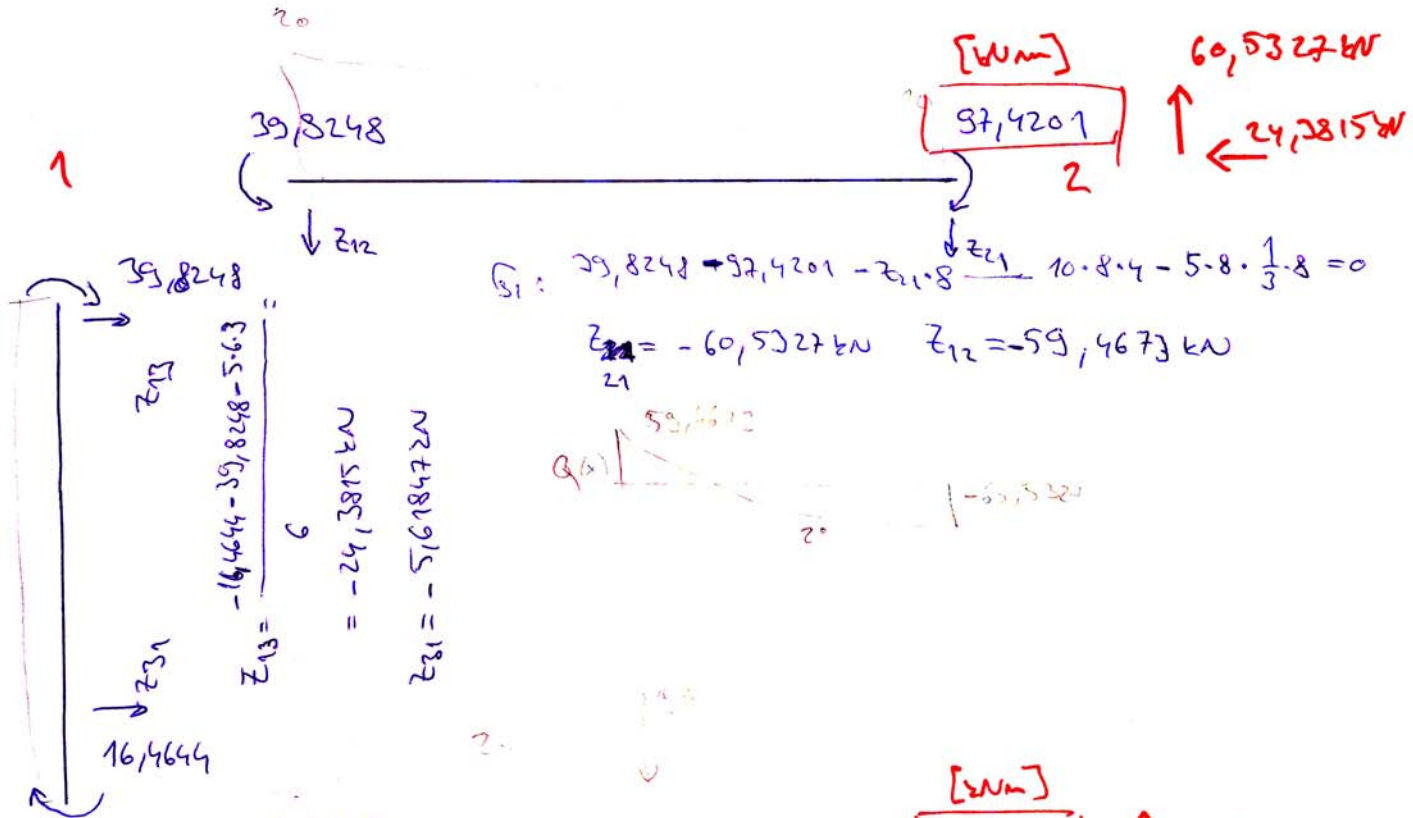 20
[kNm]
60,5327 kN
39,8248
97,4201
24,3815 kN
1
2
Z12
Z21
39,8248
31: 39,8248 - 97,4201 - Z21·8 - 10·8·4 - 5·8·1/3·8 = 0
Z13
Z21 = -60,5327 kN Z12 = -59,4673 kN
Z13 = (-16,4644 - 39,8248 - 5·6·3) / 6 =
= -24,3815 kN
Z31 = -5,61847 kN
Q(x)
20
Z31
16,4644
[kNm]